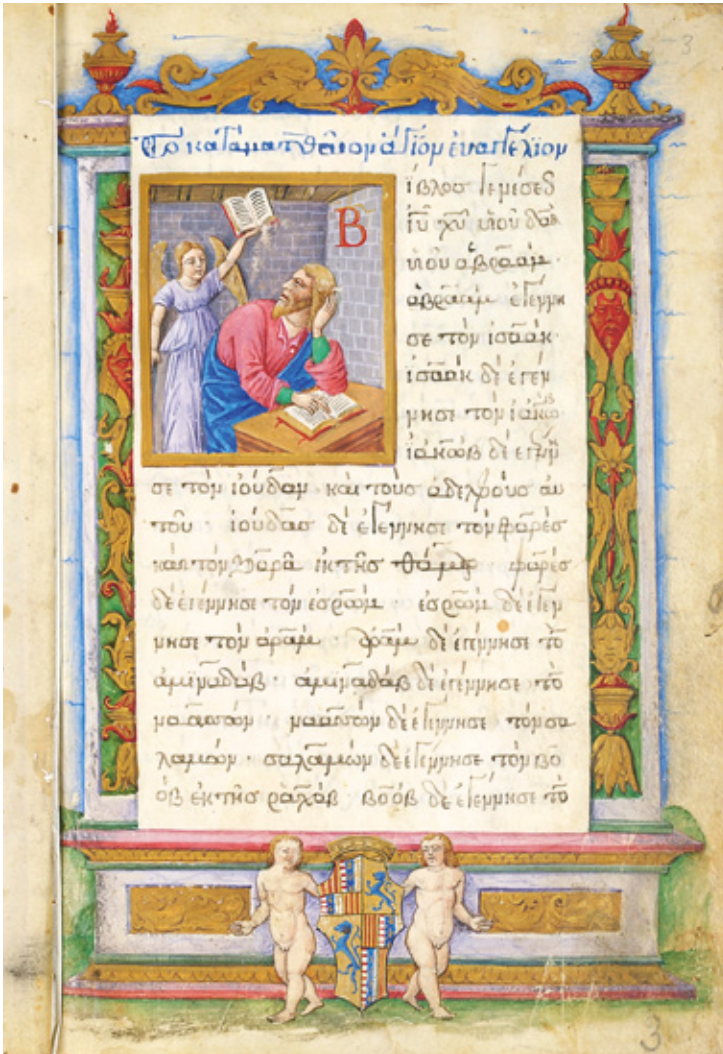 3
Τὸ κατὰ ματθαῖον ἅγιον ἐυαγγέλϊον
Β
ίβλος γενέσεως
ἰῦ χῦ υἱοῦ δαδ
υἱοῦ ἀβραάμ·
ἀβραὰμ ἐγέννη
σε τὸν ἰσαάκ·
ἰσαὰκ δὲ ἐγέν
νησε τὸν ἰακώβ
ἰακὼβ δὲ ἐγέννη
σε τὸν ἰούδαν· καὶ τοὺς ἀδελφοὺς αὐ
τοῦ· ἰούδας δὲ ἐγέννησε τὸν φαρὲς
καὶ τὸν ζαρὰ ἐκ τῆς θάμαρ φαρὲς
δὲ ἐγέννησε τὸν ἐσρώμ ἐσρὼμ δὲ ἐγέν
νησε τὸν ἀράμ ἀρὰμ δὲ ἐγέννησε τὸ
ἀμιναδάβ ἀμιναδὰβ δὲ ἐγέννησε τὸ
ναασσών ναασσὼν δὲ ἐγέννησε τὸν σα
λαμών· σαλαμὼν δὲ ἐγέννησε τὸν βο
ὸβ ἐκ τῆς ραχάβ βοὸβ δὲ ἐγέννησε τὸ
3